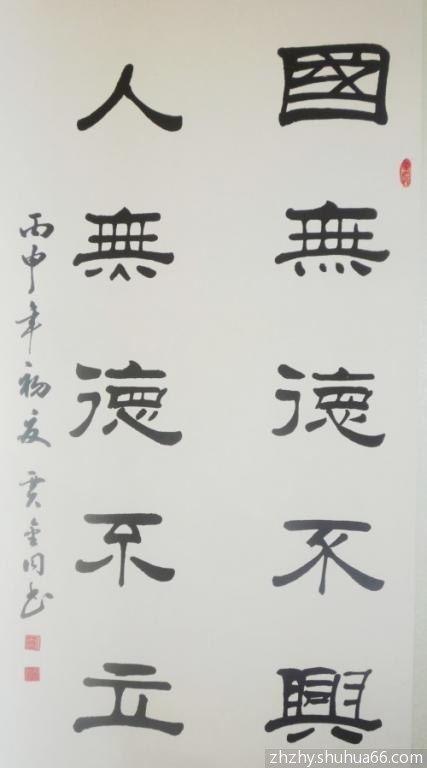 國無德不興
人無德不立
丙申年初夏 賈金同书
zhzhy.shuhua66.com